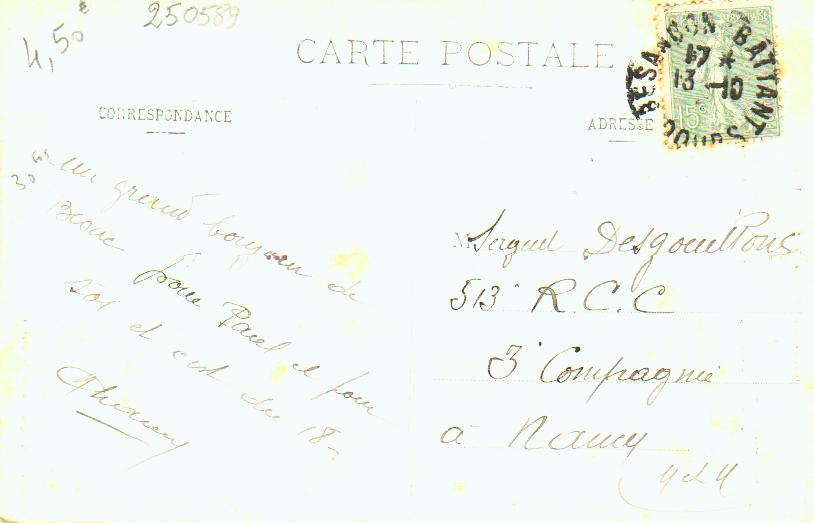 4,50 €
250589
CARTE POSTALE
CORRESPONDANCE
ADRESSE
BESANÇON-BATTANT
17 *
13 -10
DOUBS
15c
30
Un grand bonjour de
Besac pour Paul et pour
toi et c'est du 18-
M Sergent Desgouttons
513° R.C.C
3° Compagnie
à Nancy
M et M